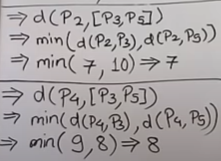 ⇒ d(P₂,[P₃,P₅])
⇒ min(d(P₂,P₃),d(P₂,P₅))
⇒ min(7, 10) ⇒ 7
⇒ d(P₄,[P₃,P₅])
⇒ min(d(P₄,P₃),d(P₄,P₅))
⇒ min(9,8) ⇒ 8